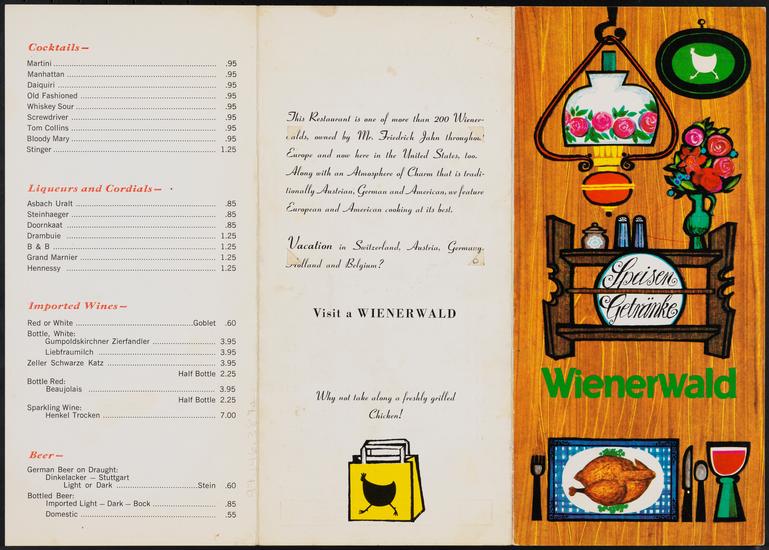 Cocktails—
Martini .95
Manhattan .95
Daiquiri .95
Old Fashioned .95
Whiskey Sour .95
Screwdriver .95
Tom Collins .95
Bloody Mary .95
Stinger 1.25
Liqueurs and Cordials—
Asbach Uralt .85
Steinhaeger .85
Doornkaat .85
Drambuie 1.25
B & B 1.25
Grand Marnier 1.25
Hennessy 1.25
Imported Wines—
Red or White Goblet .60
Bottle, White:
Gumpoldskirchner Zierfandler 3.95
Liebfraumilch 3.95
Zeller Schwarze Katz 3.95
Half Bottle 2.25
Bottle Red:
Beaujolais 3.95
Half Bottle 2.25
Sparkling Wine:
Henkel Trocken 7.00
Beer—
German Beer on Draught:
Dinkelacker – Stuttgart
Light or Dark Stein .60
Bottled Beer:
Imported Light – Dark – Bock .85
Domestic .55
This Restaurant is one of more than 200 Wiener-
walds, owned by Mr. Friedrich Jahn throughout
Europe and now here in the United States, too.
Along with an Atmosphere of Charm that is tradi-
tionally Austrian, German and American, we feature
European and American cooking at its best.
Vacation in Switzerland, Austria, Germany,
Holland and Belgium?
Visit a WIENERWALD
Why not take along a freshly grilled
Chicken!
Speisen
Getränke
Wienerwald